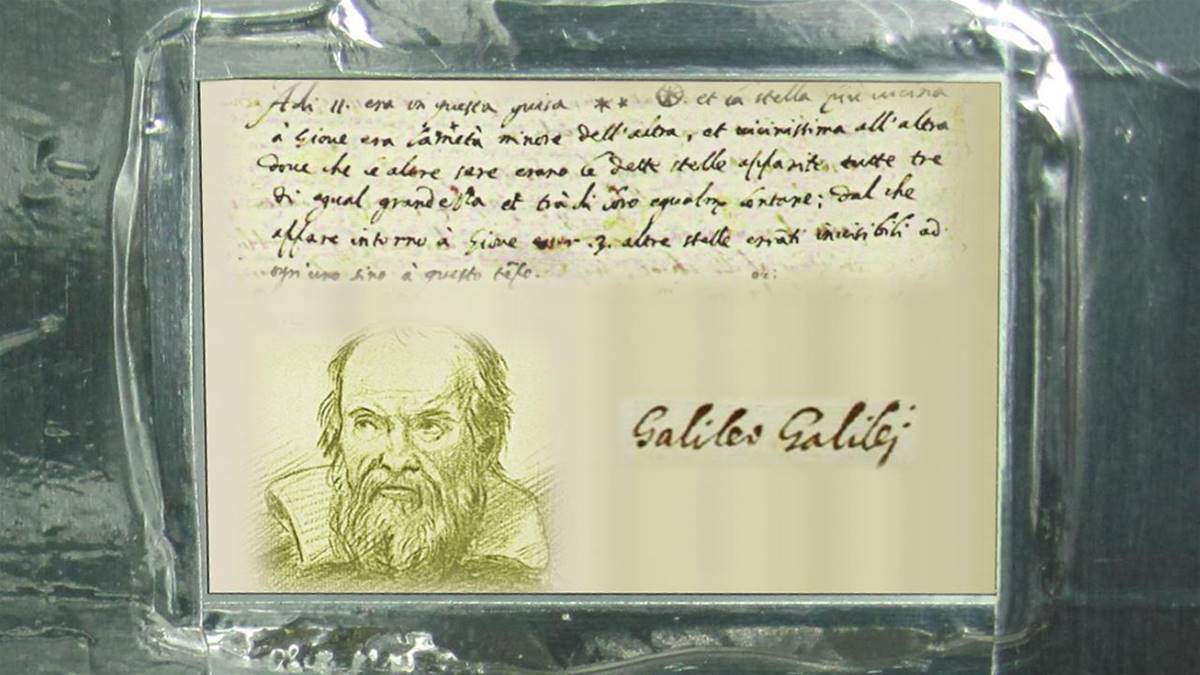 Adi 11. era in questa guisa ** et la stella più vicina
à Giove era la metà minore dell'altra, et vicinissima all'altra
doue che le altre sere erano le dette stelle apparite tutte tre
di egual grandezza et trà di loro egualm̃ lontane; dal che
appare intorno à Giove esser .3. altre stelle errãti invisibili ad
ogn'uno sino à questo tẽpo.
Galileo Galilej